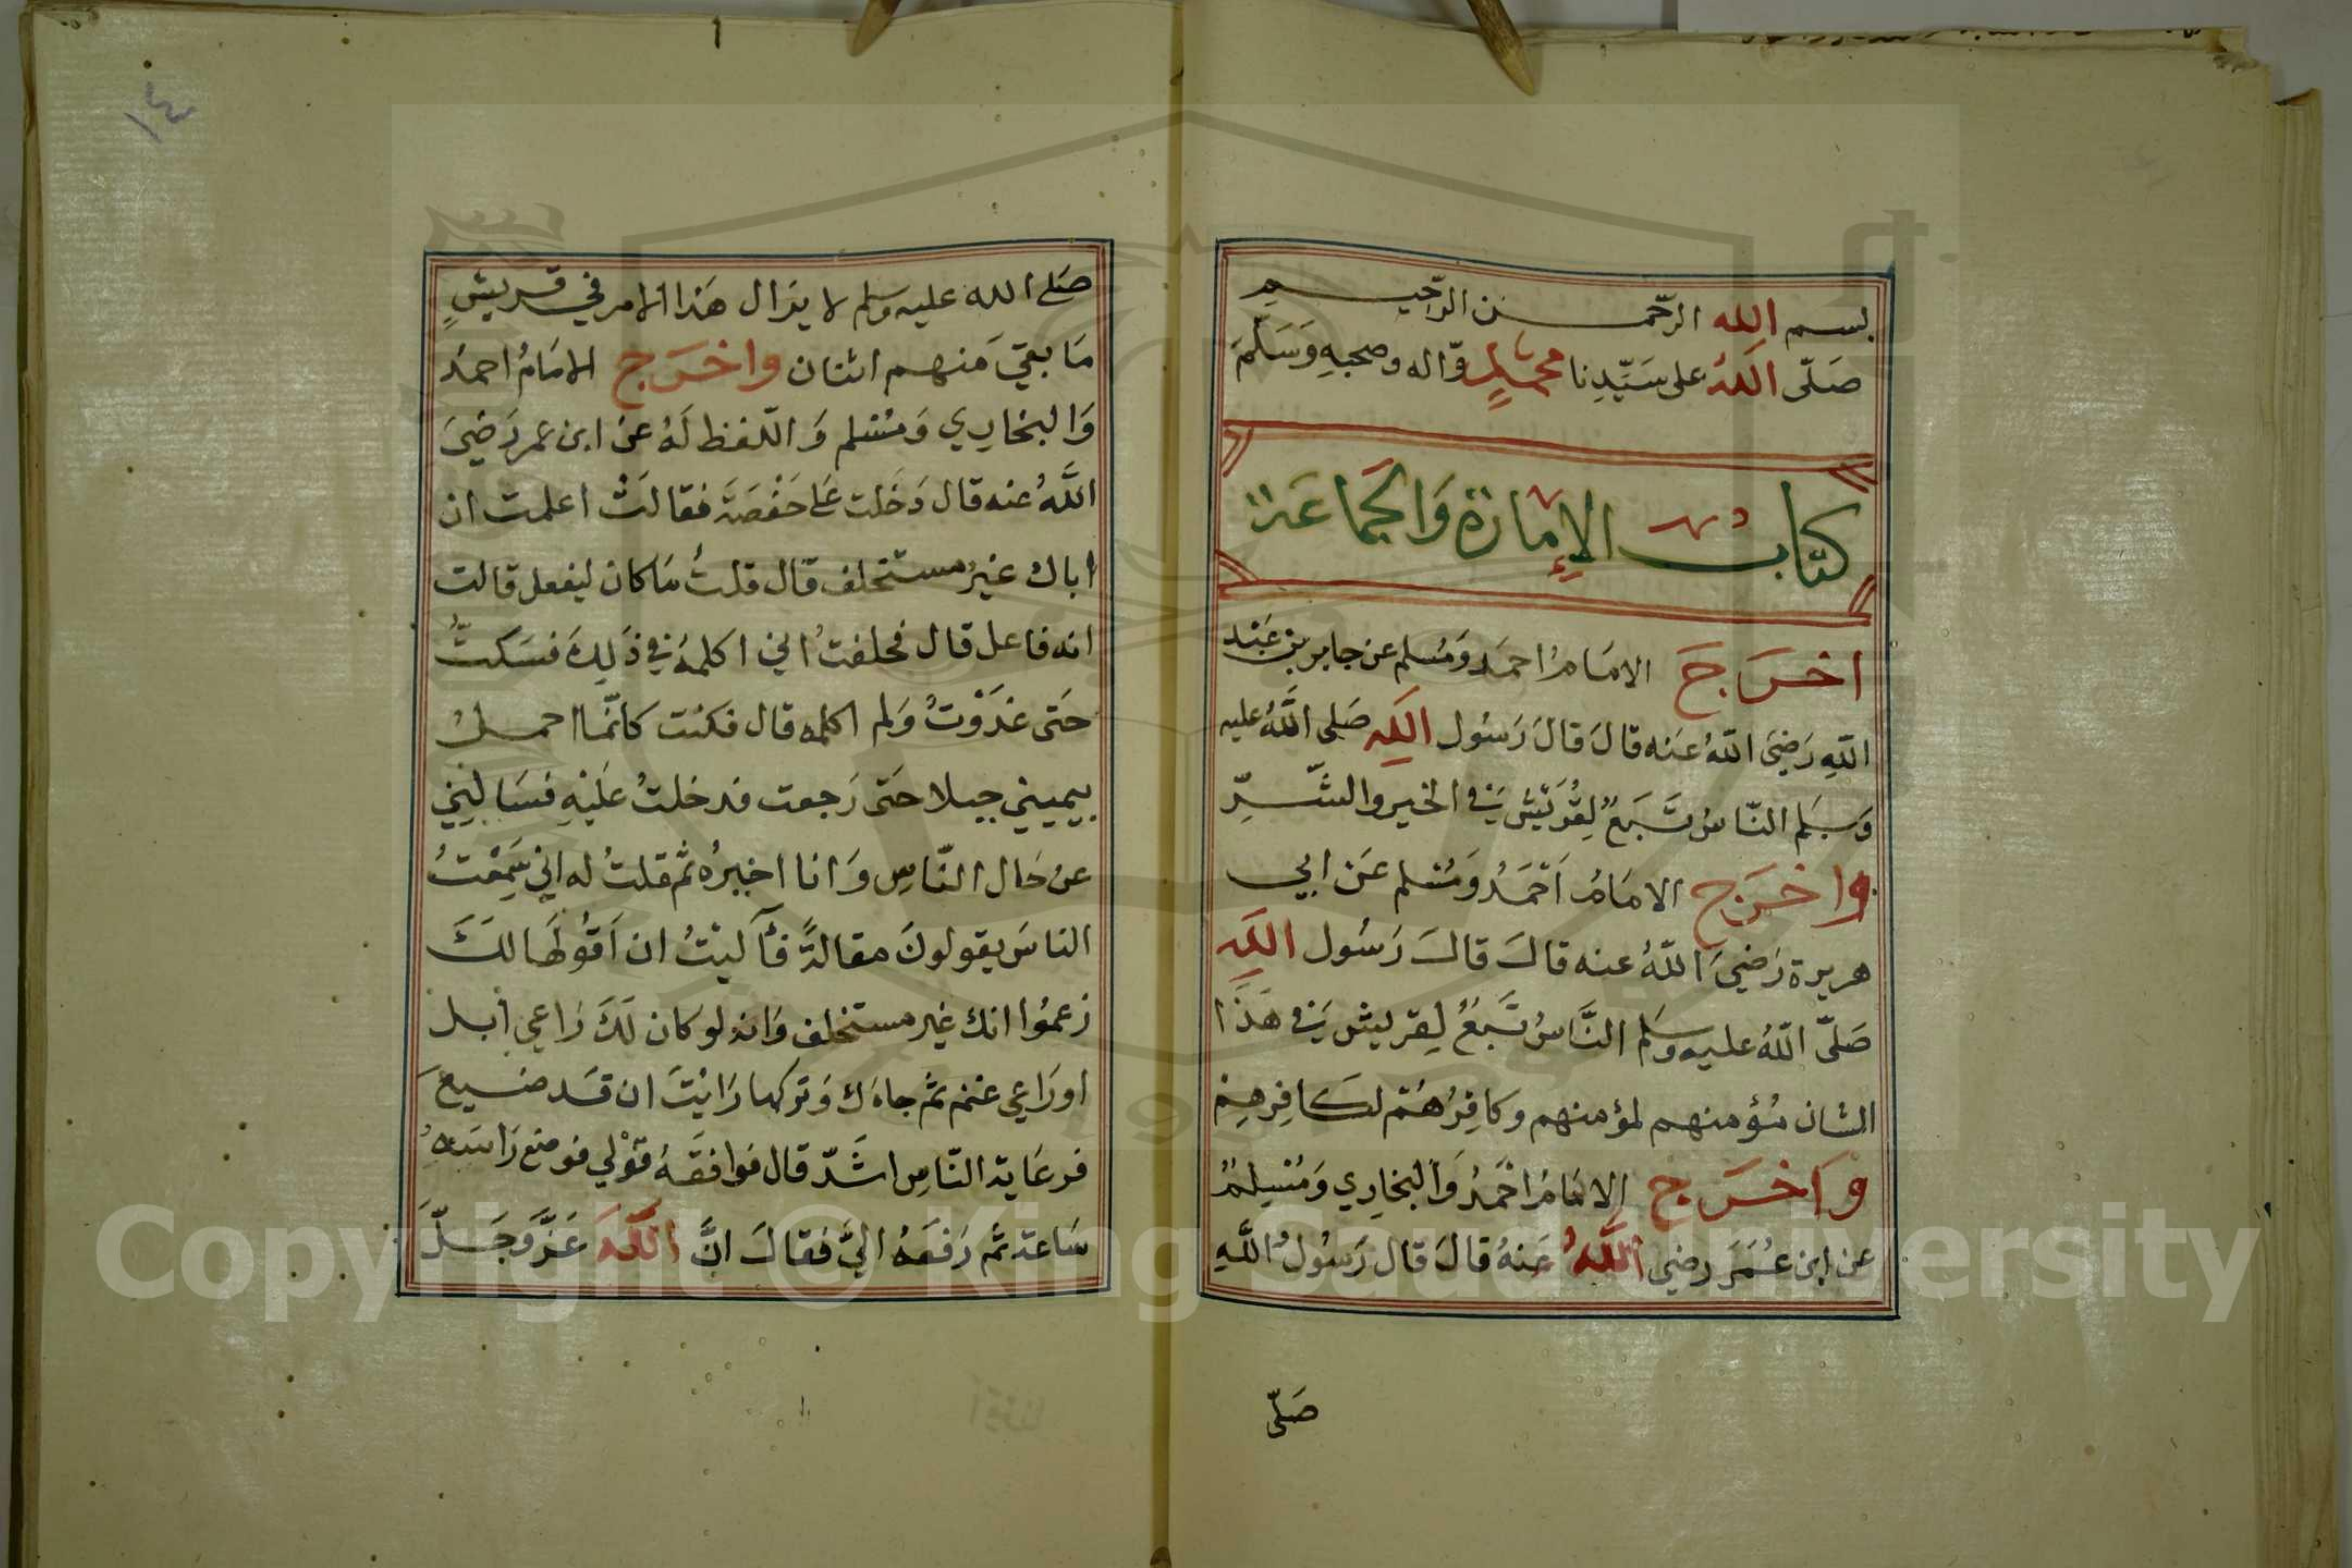 بسم الله الرحمـــن الرحيـــم
صَلّى اللهُ على سَيّدِنا محمدٍ وآله وصحبهِ وَسَلّمَ
كتابُ الإمارة وَالجماعَة
اخرَجَ الامَامُ احمَد وَمُسلم عن جابر بن عَبْد
اللهِ رَضِيَ اللهُ عنه قالَ قالَ رَسُول اللهِ صَلى اللهُ عليه
وَسلم النّاسُ تَبَعٌ لِقُرَيْش في الخير والشّــرِّ
واخرَج الامَامُ أحْمَدُ وَمُسلم عَن ابي
هريرة رَضيَ اللهُ عنه قالَ قالَ رَسُول اللهِ
صَلّى اللهُ عليه وسلم النَّاسُ تَبَعٌ لِقريش في هَذا
الشان مُؤمنهم لمؤمنهم وكافِرُهُمْ لكافِرِهِمْ
وَاخرَج الامَامُ احْمَدُ وَالبخارِي وَمُسْلِمٌ
عن ابن عُمَرَ رضي اللهُ عَنهُ قالَ قال رَسُولُ اللهِ
صَلّى
١٤
صَلى الله عليه وسلم لا يزال هَذا الامر في قريشٍ
مَا بقيَ مَنهم اثنان واخرَج الامَامُ احمدُ
وَالبخاري وَمُسْلم وَاللفظ لَهُ عن ابن عمر رَضيَ
اللهُ عنه قال دَخَلت عَلى حَفْصَة فقالَتْ اعلمت ان
اباك غيرُ مستخلف قال قلتُ مَا كان ليفعل قالت
انه فاعل قال فحلفتُ اني اكلمهُ في ذَلِكَ فسَكتُّ
حَتى غدَوْتُ وَلم اكلمه قال فكنت كانّما احمــلُ
بيميني جبلا حَتى رَجعت فدخلتُ عَليْهِ فسَالنِي
عن حَال النّاسِ وَانا اخبرُه ثم قلتُ له اني سَمِعْتُ
الناسَ يقولونَ مقالةً فآليْتُ ان اَقُولهَا لكَ
زعمُوا انك غير مستخلف وَانه لو كان لَكَ رَاعي ابل
او رَاعي غنم ثم جاءَك وَتركها رَايْتَ ان قَد ضيعَ
فرعَاية النّاسِ اشَدّ قال فوافقهُ قوْلي فوضع رَاسَهُ
سَاعة ثم رَفعَهُ اليَّ فقالَ انَّ اللهَ عَزَّ وَجَــلَّ
Copyright © King Saud University